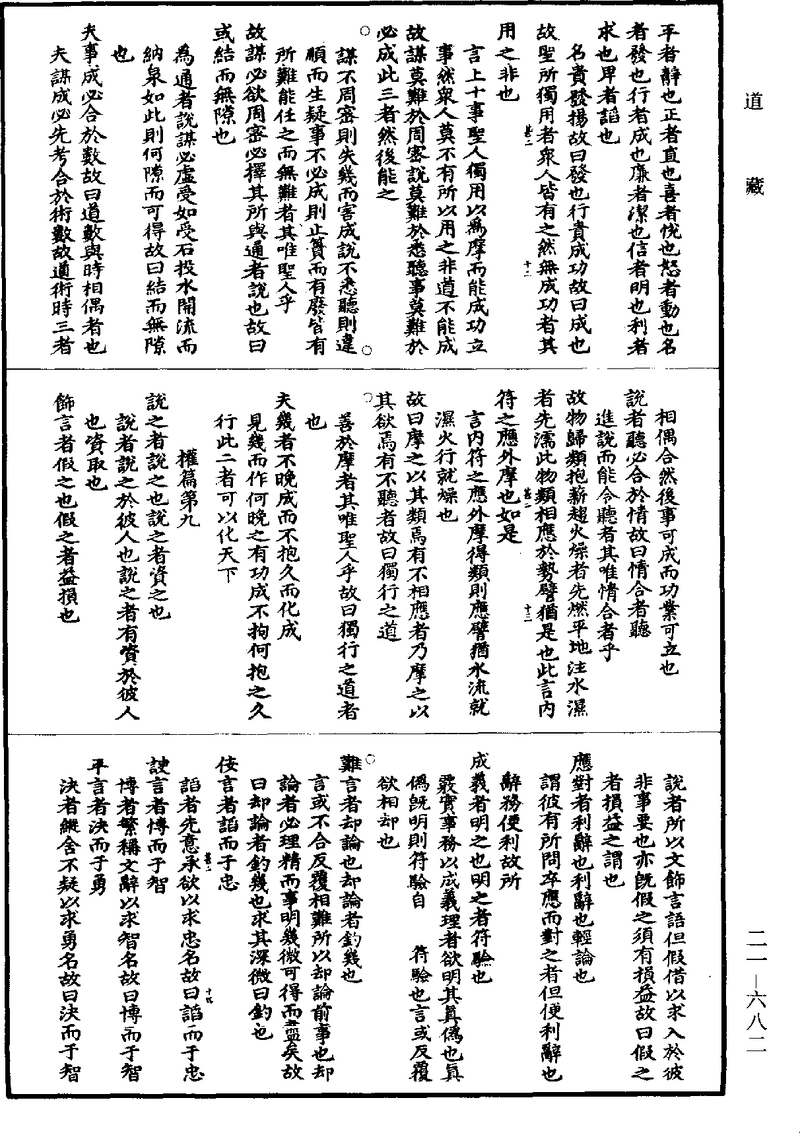 道藏
平者靜也正者直也喜者悅也怒者動也名
者發也行者成也廉者潔也信者明也利者
求也卑者謟也
名貴發揚故曰發也行貴成功故曰成也
故聖所獨用者衆人皆有之然無成功者其
用之非也
言上十事聖人獨用以爲摩而能成功立
事然衆人莫不有所以用之非道不能成
故謀莫難於周密說莫難於悉聽事莫難於
必成此三者然後能之
謀不周密則失幾而害成說不悉聽則違
順而生疑事不必成則止簣而有廢皆有
所難能任之而無難者其唯聖人乎
故謀必欲周密必擇其所與通者說也故曰
或結而無隙也
爲通者說謀必虛受如受石投水開流而
納泉如此則何隙而可得故曰結而無隙
也
夫事成必合於數故曰道數與時相偶者也
夫謀成必先考合於術數故道術時三者
相偶合然後事可成而功業可立也
說者聽必合於情故曰情合者聽
進說而能令聽者其唯情合者乎
故物歸類抱薪趨火燥者先燃平地注水濕
者先濡此物類相應於勢譬猶是也此言内
符之應外摩也如是
言内符之應外摩得類則應譬猶水流就
濕火行就燥也
故曰摩之以其類焉有不相應者乃摩之以
其欲焉有不聽者故曰獨行之道
善於摩者其唯聖人乎故曰獨行之道者
也
夫幾者不晚成而不抱久而化成
見幾而作何晚之有功成不拘何抱之久
行此二者可以化天下
權篇第九
說之者說之也說之者資之也
說者說之於彼人也說之者有資於彼人
也資取也
飾言者假之也假之者益損也
說者所以文飾言語但假借以求入於彼
非事要也亦旣假之須有損益故曰假之
者損益之謂也
應對者利辭也利辭也輕論也
謂彼有所問卒應而對之者但便利辭也
辭務便利故所
成義者明之也明之者符驗也
覈實事務以成義理者欲明其真僞也真
僞旣明則符驗自 符驗也言或反覆
欲相却也
難言者却論也却論者釣幾也
言或不合反覆相難所以却論前事也却
論者必理精而事明幾微可得而盡矣故
曰却論者釣幾也求其深微曰釣也
佞言者謟而于忠
謟者先意承欲以求忠名故曰謟而于忠
諛言者博而于智
博者繁稱文辭以求智名故曰博而于智
平言者決而于勇
決者縱舍不疑以求勇名故曰決而于智
二一—六八二